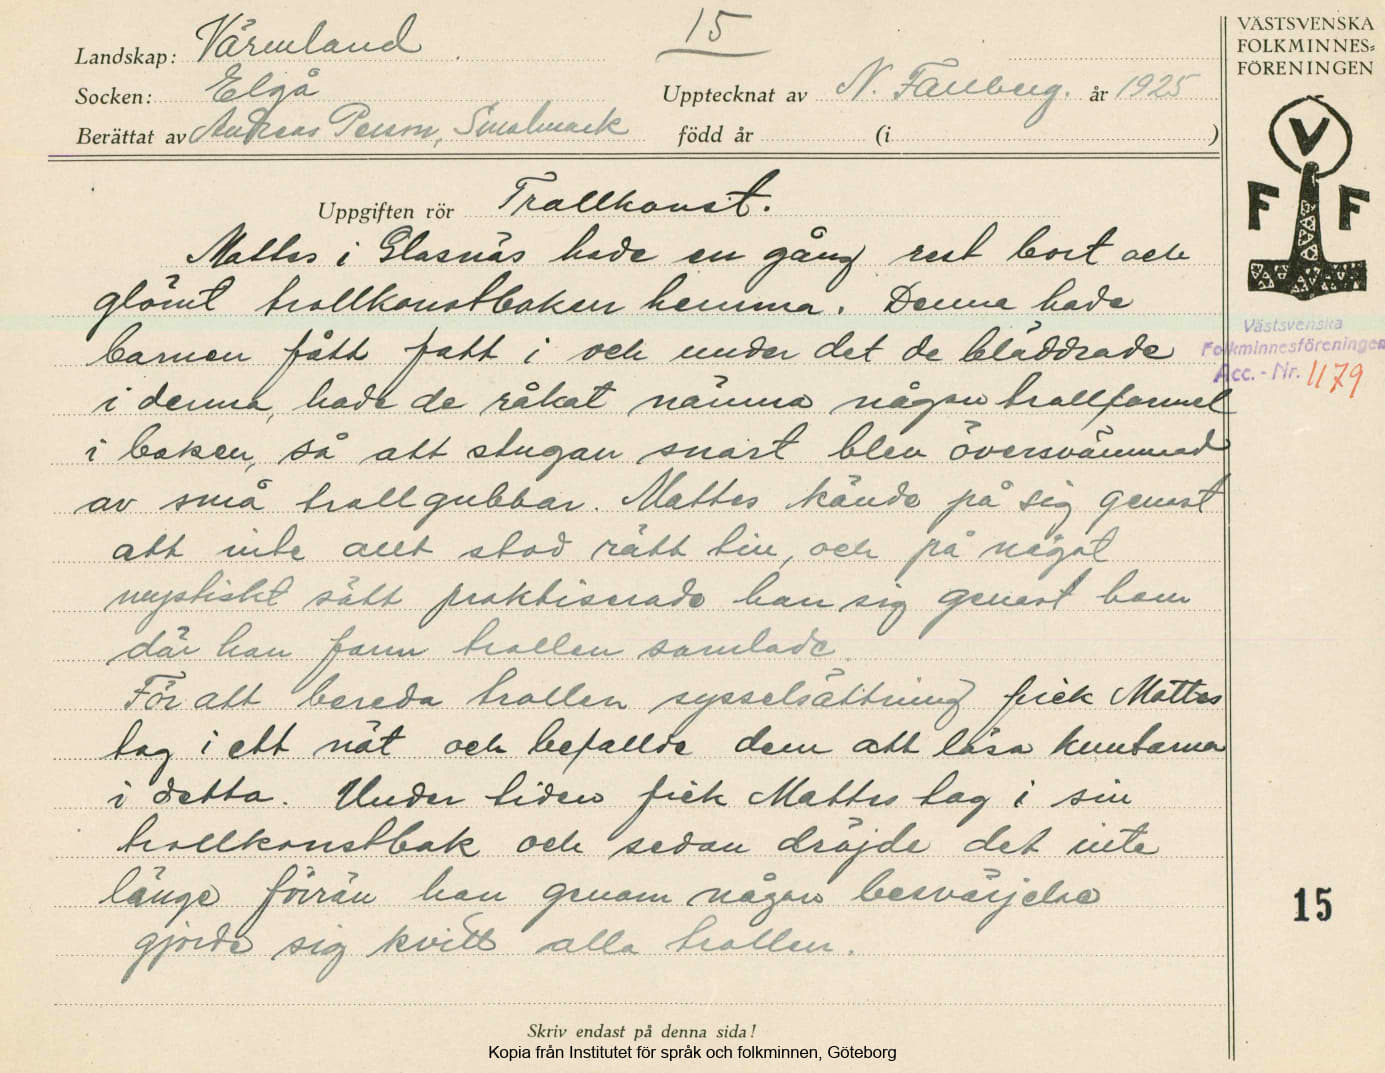 15
VÄSTSVENSKA
FOLKMINNES=
FÖRENINGEN
Landskap: Värmland
Socken: Elgå
Upptecknat av N. Fanberg. år 1925
Berättat av Andreas Person, Smolmark
född år (i )
V
F F
Uppgiften rör Trollkonst.
Mattes i Glasnäs hade en gång rest bort och
glömt trollkonstboken hemma. Denna hade
barnen fått fatt i och under det de bläddrade
i denna, hade de råkat nämna någon trollformel
i boken, så att stugan snart blev översvämmad
av små trollgubbar. Mattes kände på sig genast
att inte allt stod rätt till, och på något
mystiskt sätt praktiserade han sig genast hem
där han fann trollen samlade.
För att bereda trollen sysselsättning fick Mattes
tag i ett nät och befallde dem att lösa knutarna
i detta. Under tiden fick Mattes tag i sin
trollkonstbok och sedan dröjde det inte
länge förrän han genom någon besvärjelse
gjorde sig kvitt alla trollen.
Västsvenska
Folkminnesföreningen
Acc. - Nr. 1179
15
Skriv endast på denna sida!
Kopia från Institutet för språk och folkminnen, Göteborg